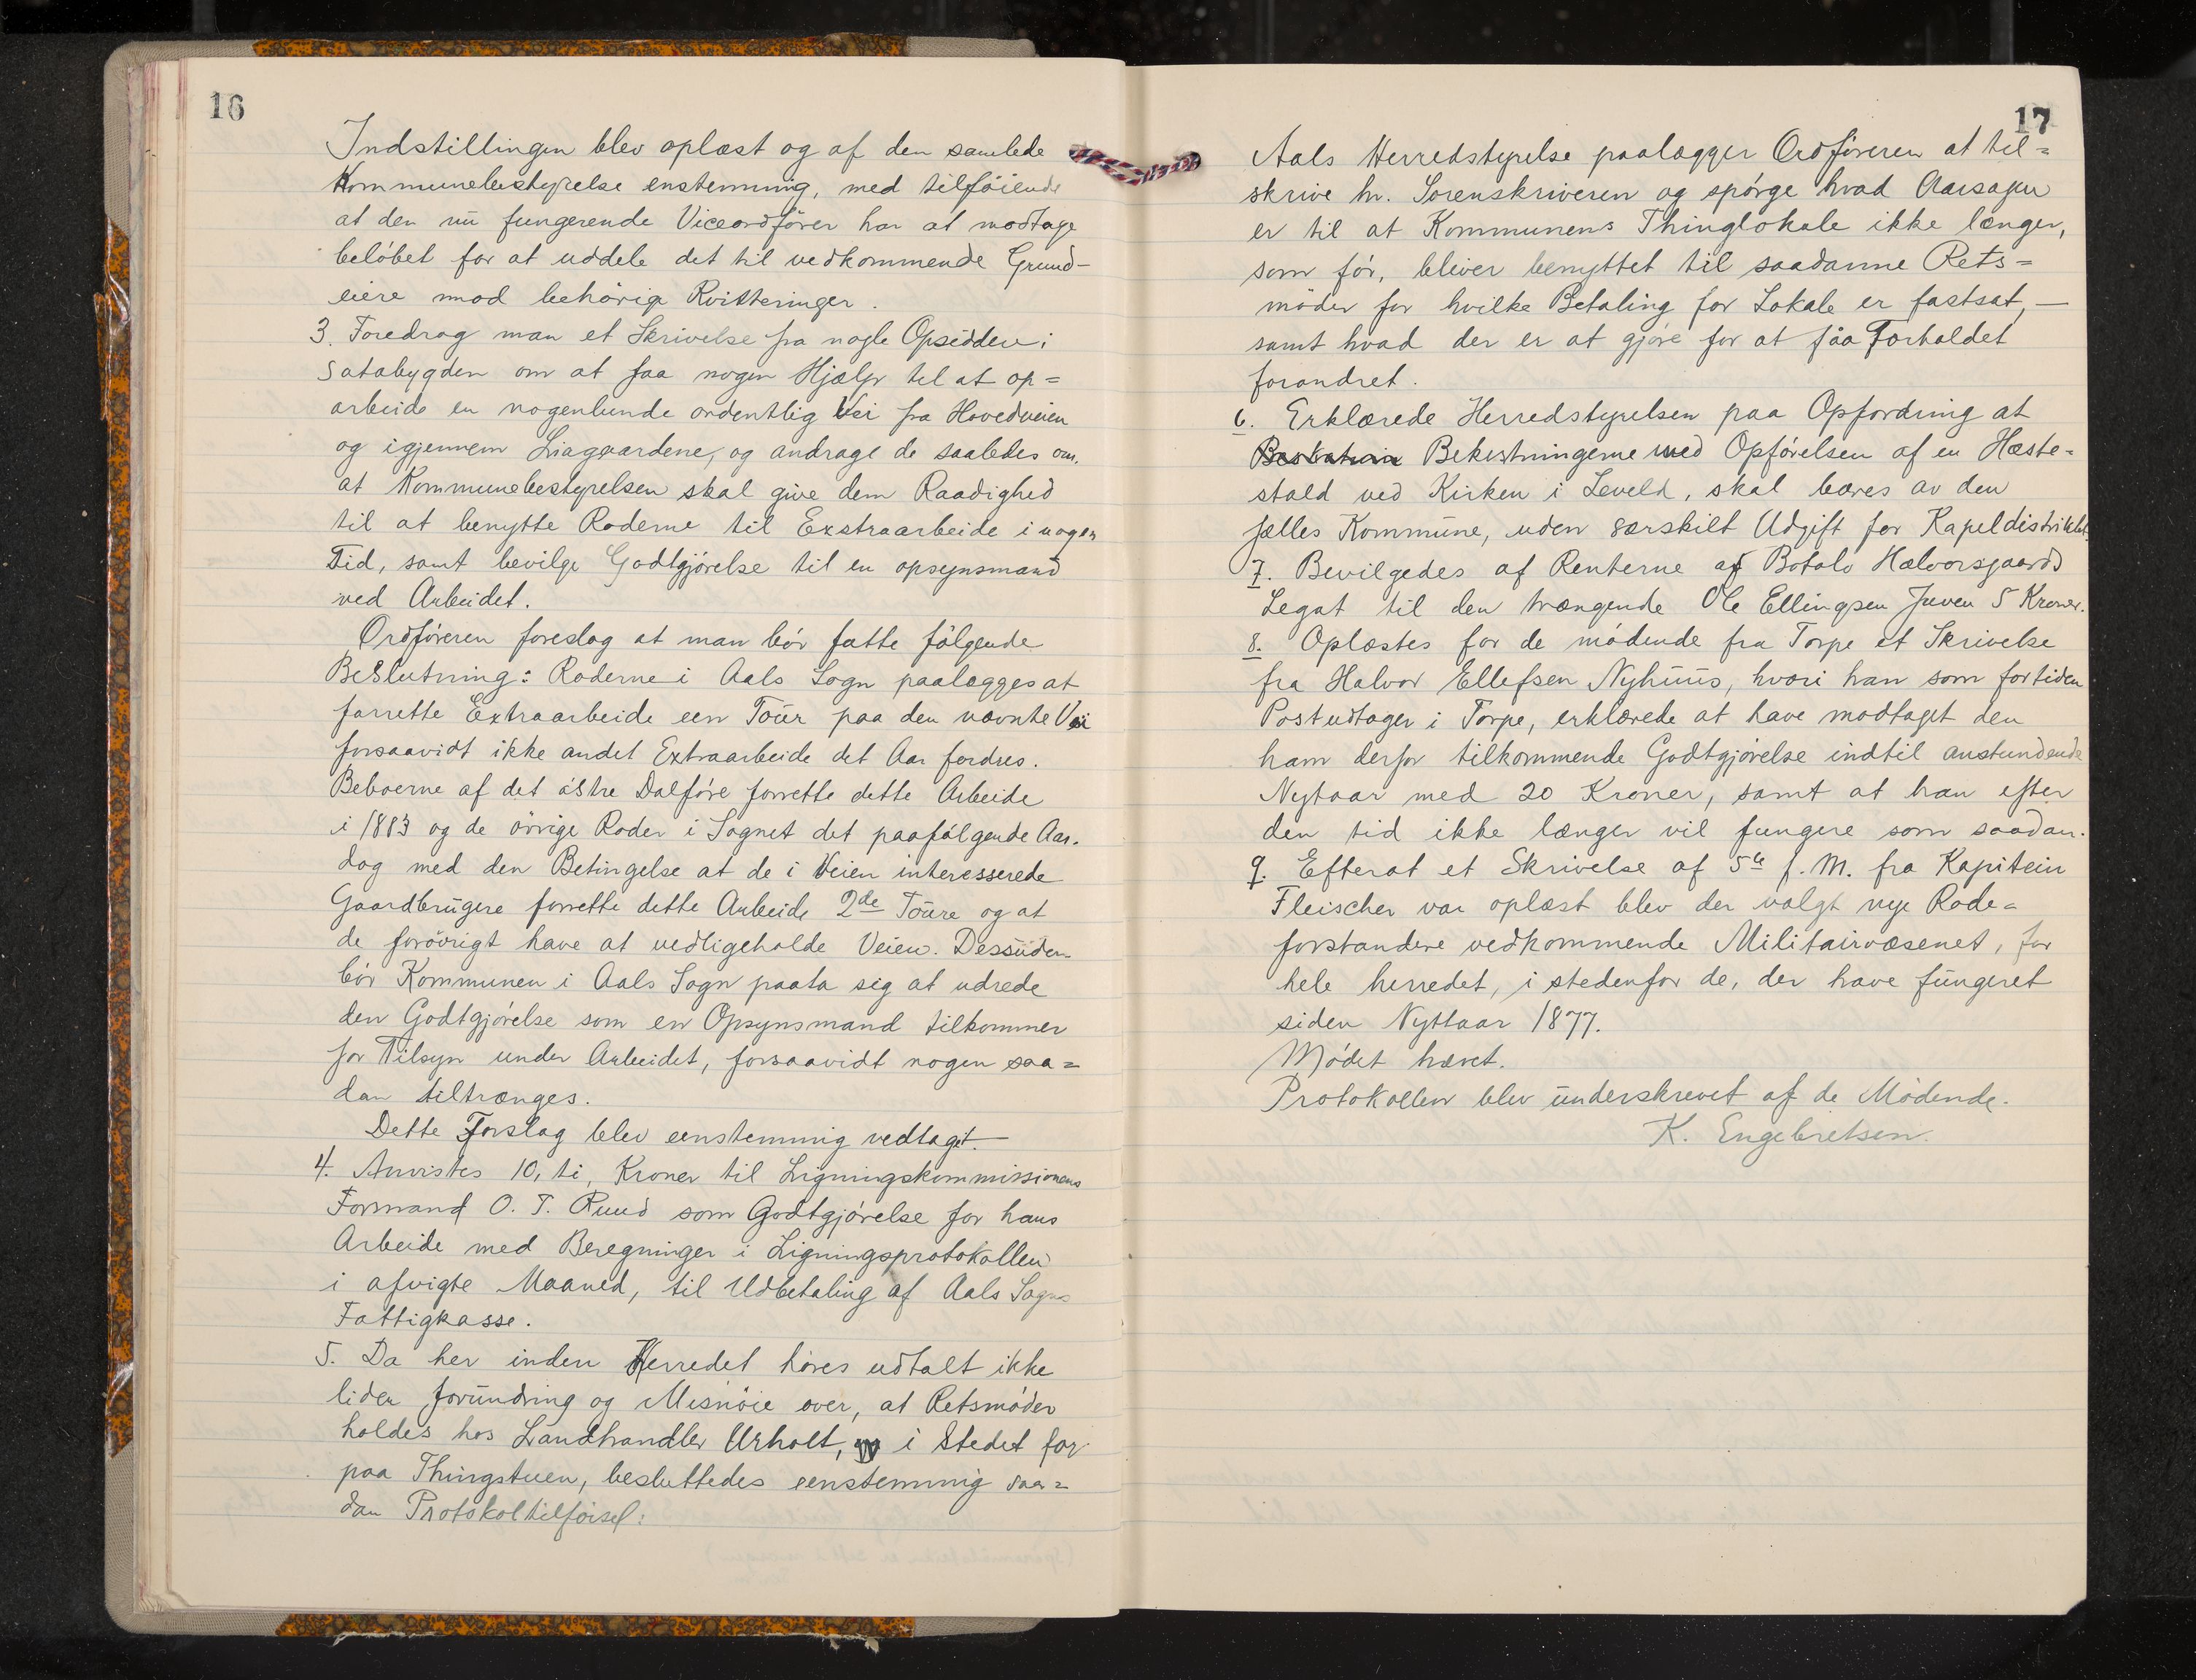 16
Indstillingen blev oplæst og af den samlede
Kommunebestyrelse enstemmig, med tilføiende
at den nu fungerende Viceordfører har at modtage
beløbet for at uddele det til vedkommende Grund-
eiere mod behørige Kvitteringer.
3. Foredrog man et Skrivelse fra nogle Opsiddere i
Satabygden om at faa nogen Hjælp til at op=
arbeide en nogenlunde ordentlig Vei fra Hovedveien
og igjennem Liagaardene, og andrage de saaledes om,
at Kommunebestyrelsen skal give dem Raadighed
til at benytte Roderne til Exstraarbeide i nogen
Tid, samt bevilge Godtgjørelse til en opsynsmand
ved Arbeidet.
Ordføreren foreslog at man bør fatte følgende
Beslutning: Roderne i Aals Sogn paalægges at
forrette Extraarbeide een Tour paa den nævnte Vei
forsaavidt ikke andet Extraarbeide det Aar fordres.
Beboerne af det østre Dalføre forrette dette Arbeide
i 1883 og de øvrige Roder i Sognet det paafølgende Aar.
dog med den Betingelse at de i Veien interesserede
Gaardbrugere forrette dette Arbeide 2de Toure og at
de forøvrigt have at vedligeholde Veien. Dessuden
bør Kommunen i Aals Sogn paata sig at udrede
den Godtgjørelse som en Opsynsmand tilkommer
for Tilsyn under Arbeidet, forsaavidt nogen saa=
dan tiltrænges.
Dette Forslag blev eenstemmig vedtaget.
4. Anvistes 10, ti, Kroner til Ligningskommissionens
Formand O. T. Ruud som Godtgjørelse for hans
Arbeide med Beregninger i Ligningsprotokollen
i afvigte Maaned, til Udbetaling af Aals Sogns
Fattigkasse.
5. Da her inden Herredet høres udtalt ikke
liden forundring og Misnøie over, at Retsmøder
holdes hos Landhandler Urholt, i Stedet for
paa Thingstuen, besluttedes eenstemmig saa=
dan Protokoltilføisel:
17
Aals Herredstyrelse paalægger Ordføreren at til=
skrive hr. Sorenskriveren og spørge hvad Aarsagen
er til at Kommunens Thinglokale ikke længer,
som før, bliver benyttet til saadanne Rets=
møder for hvilke Betaling for Lokale er fastsat, —
samt hvad der er at gjøre for at faa Forholdet
forandret.
6. Erklærede Herredstyrelsen paa Opfordring at
Bekostningerne med Opførelsen af en Hæste=
stald ved Kirken i Leveld, skal bæres av den
fælles Kommune, uden særskilt Udgift for Kapeldistriktet.
7. Bevilgedes af Renterne af Botolv Halvorsgaards
Legat til den trængende Ole Ellingsen Juven 5 Kroner.
8. Oplæstes for de mødende fra Torpe et Skrivelse
fra Halvor Ellefsen Nyhuus, hvori han som fortiden
Postudtager i Torpe, erklærede at have modtaget den
ham derfor tilkommende Godtgjørelse indtil anstundende
Nytaar med 20 Kroner, samt at han efter
den tid ikke længer vil fungere som saadan.
9. Efterat et Skrivelse af 5te f. M. fra Kapitein
Fleischer var oplæst blev der valgt nye Rode=
forstandere vedkommende Militairvæsenet, for
hele herredet, i stedenfor de, der have fungeret
siden Nyttaar 1877.
Mødet hævet.
Protokollen blev underskrevet af de Mødende.
K. Engebretsen.